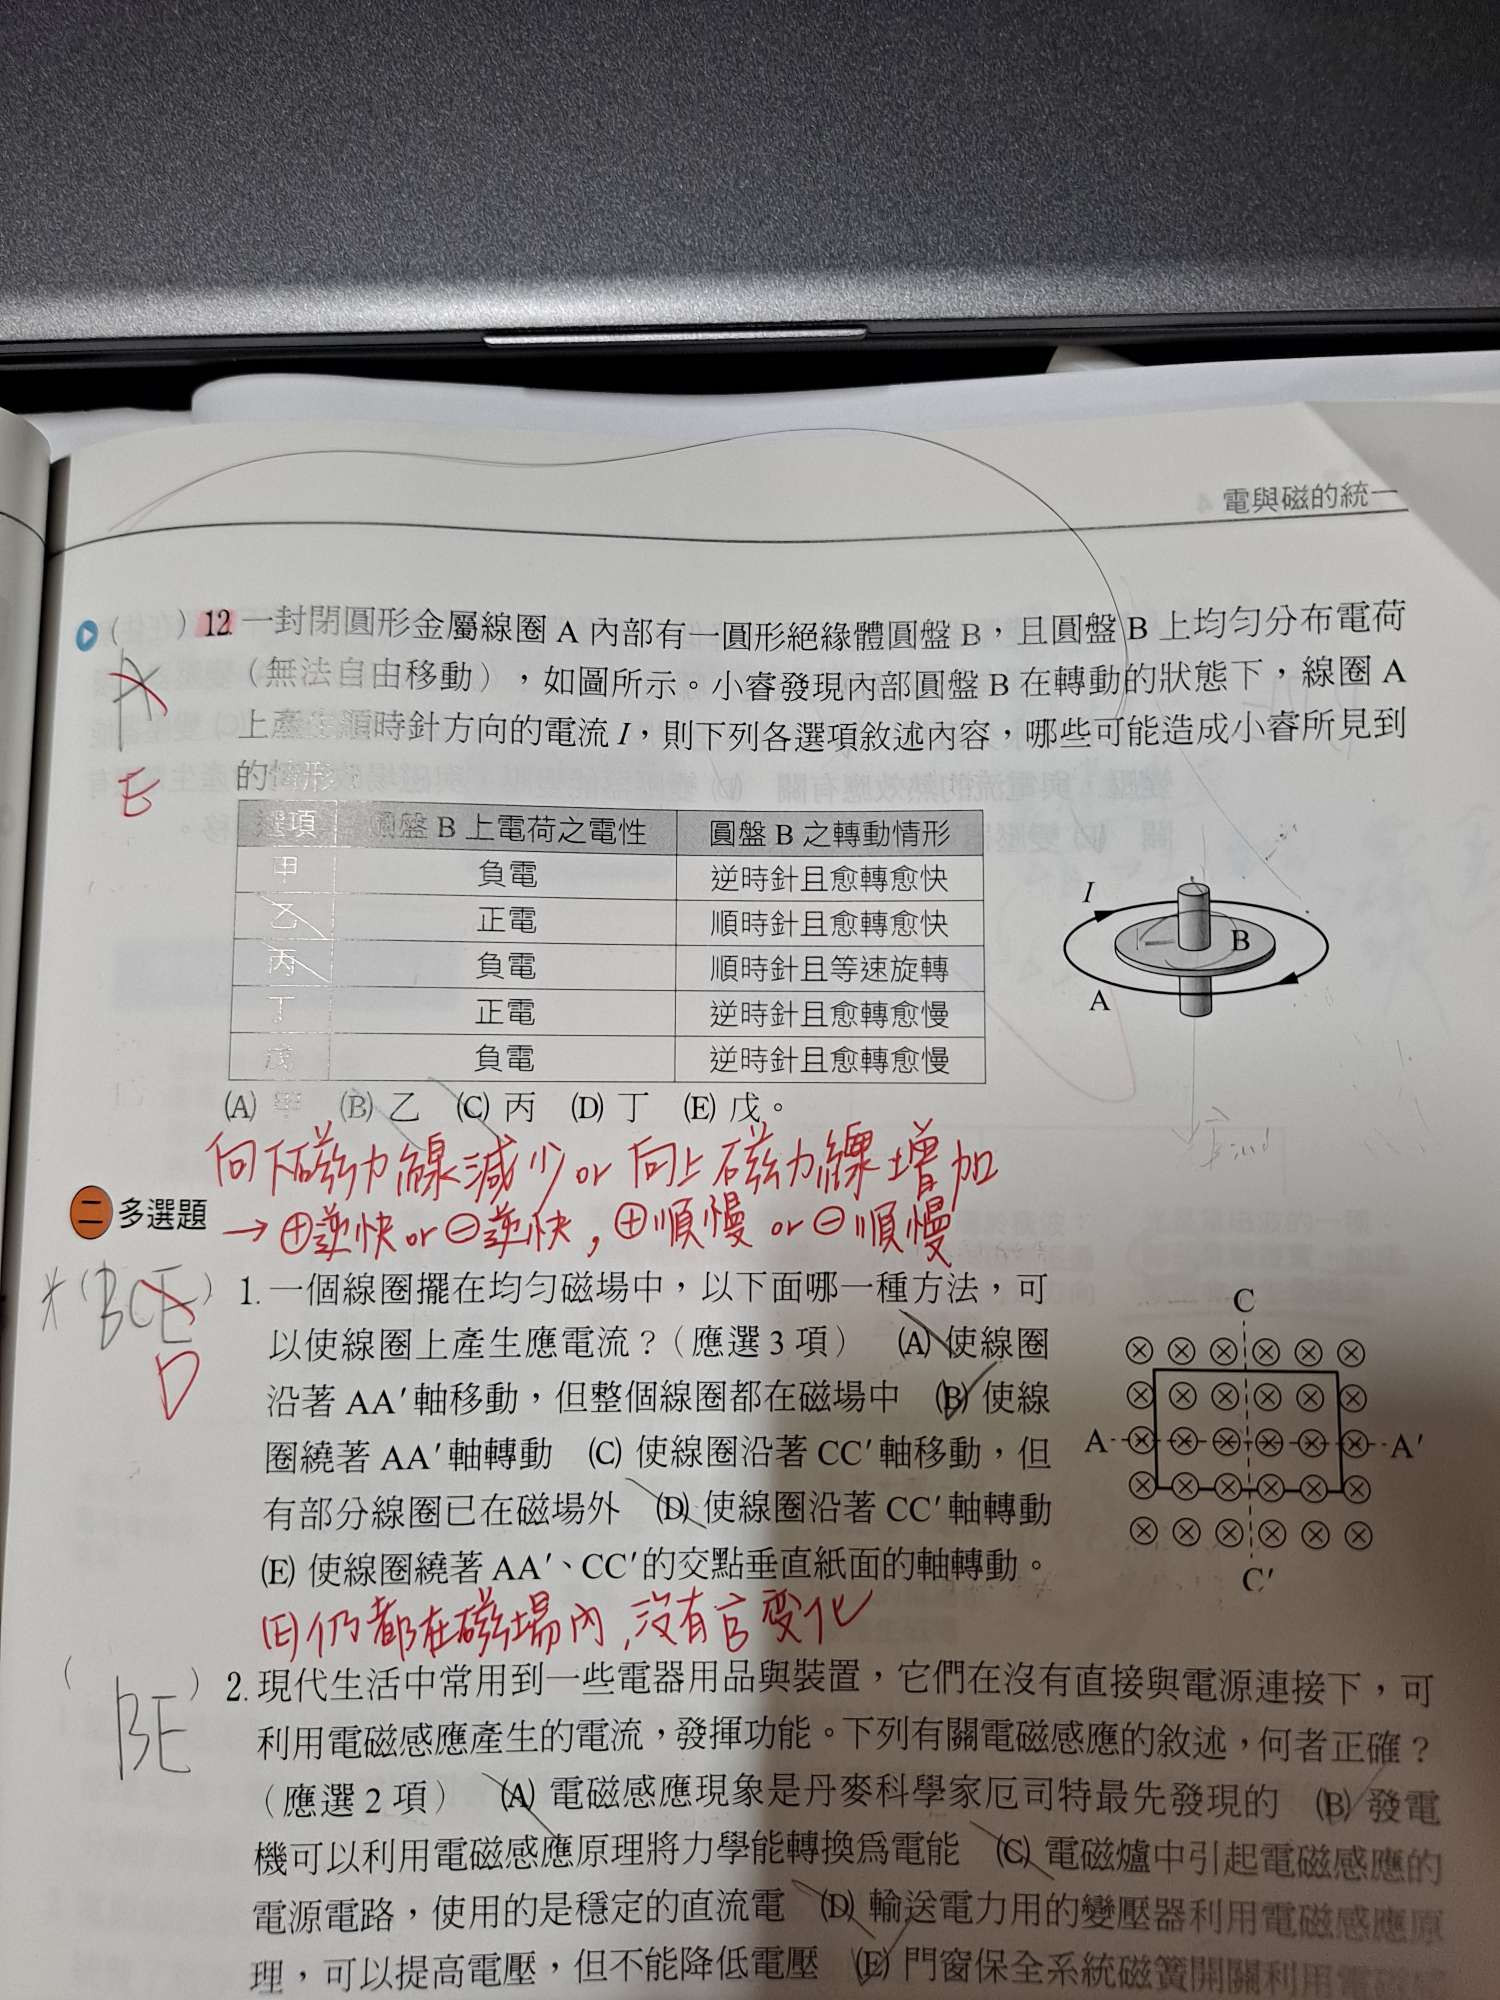 4 電與磁的統一
( ) 12. 一封閉圓形金屬線圈 A 內部有一圓形絕緣體圓盤 B，且圓盤 B 上均勻分布電荷
E
（無法自由移動），如圖所示。小睿發現內部圓盤 B 在轉動的狀態下，線圈 A
上產生順時針方向的電流 I，則下列各選項敘述內容，哪些可能造成小睿所見到
的情形？
選項 圓盤 B 上電荷之電性 圓盤 B 之轉動情形
甲 負電 逆時針且愈轉愈快
乙 正電 順時針且愈轉愈快
丙 負電 順時針且等速旋轉
丁 正電 逆時針且愈轉愈慢
戊 負電 逆時針且愈轉愈慢
I
B
A
(A) 甲 (B) 乙 (C) 丙 (D) 丁 (E) 戊。
向下磁力線減少 or 向上磁力線增加
→ ⊕逆快 or ⊖逆快，⊕順慢 or ⊖順慢
二 多選題
(BCE) 1. 一個線圈擺在均勻磁場中，以下面哪一種方法，可
D
以使線圈上產生應電流？（應選 3 項） (A) 使線圈
沿著 AA′軸移動，但整個線圈都在磁場中 (B) 使線
圈繞著 AA′軸轉動 (C) 使線圈沿著 CC′軸移動，但
有部分線圈已在磁場外 (D) 使線圈沿著 CC′軸轉動
(E) 使線圈繞著 AA′、CC′的交點垂直紙面的軸轉動。
C
A A′
C′
(E)仍都在磁場內，沒有變化
( BE ) 2. 現代生活中常用到一些電器用品與裝置，它們在沒有直接與電源連接下，可
利用電磁感應產生的電流，發揮功能。下列有關電磁感應的敘述，何者正確？
（應選 2 項） (A) 電磁感應現象是丹麥科學家厄司特最先發現的 (B) 發電
機可以利用電磁感應原理將力學能轉換為電能 (C) 電磁爐中引起電磁感應的
電源電路，使用的是穩定的直流電 (D) 輸送電力用的變壓器利用電磁感應原
理，可以提高電壓，但不能降低電壓 (E) 門窗保全系統磁簧開關利用電磁感